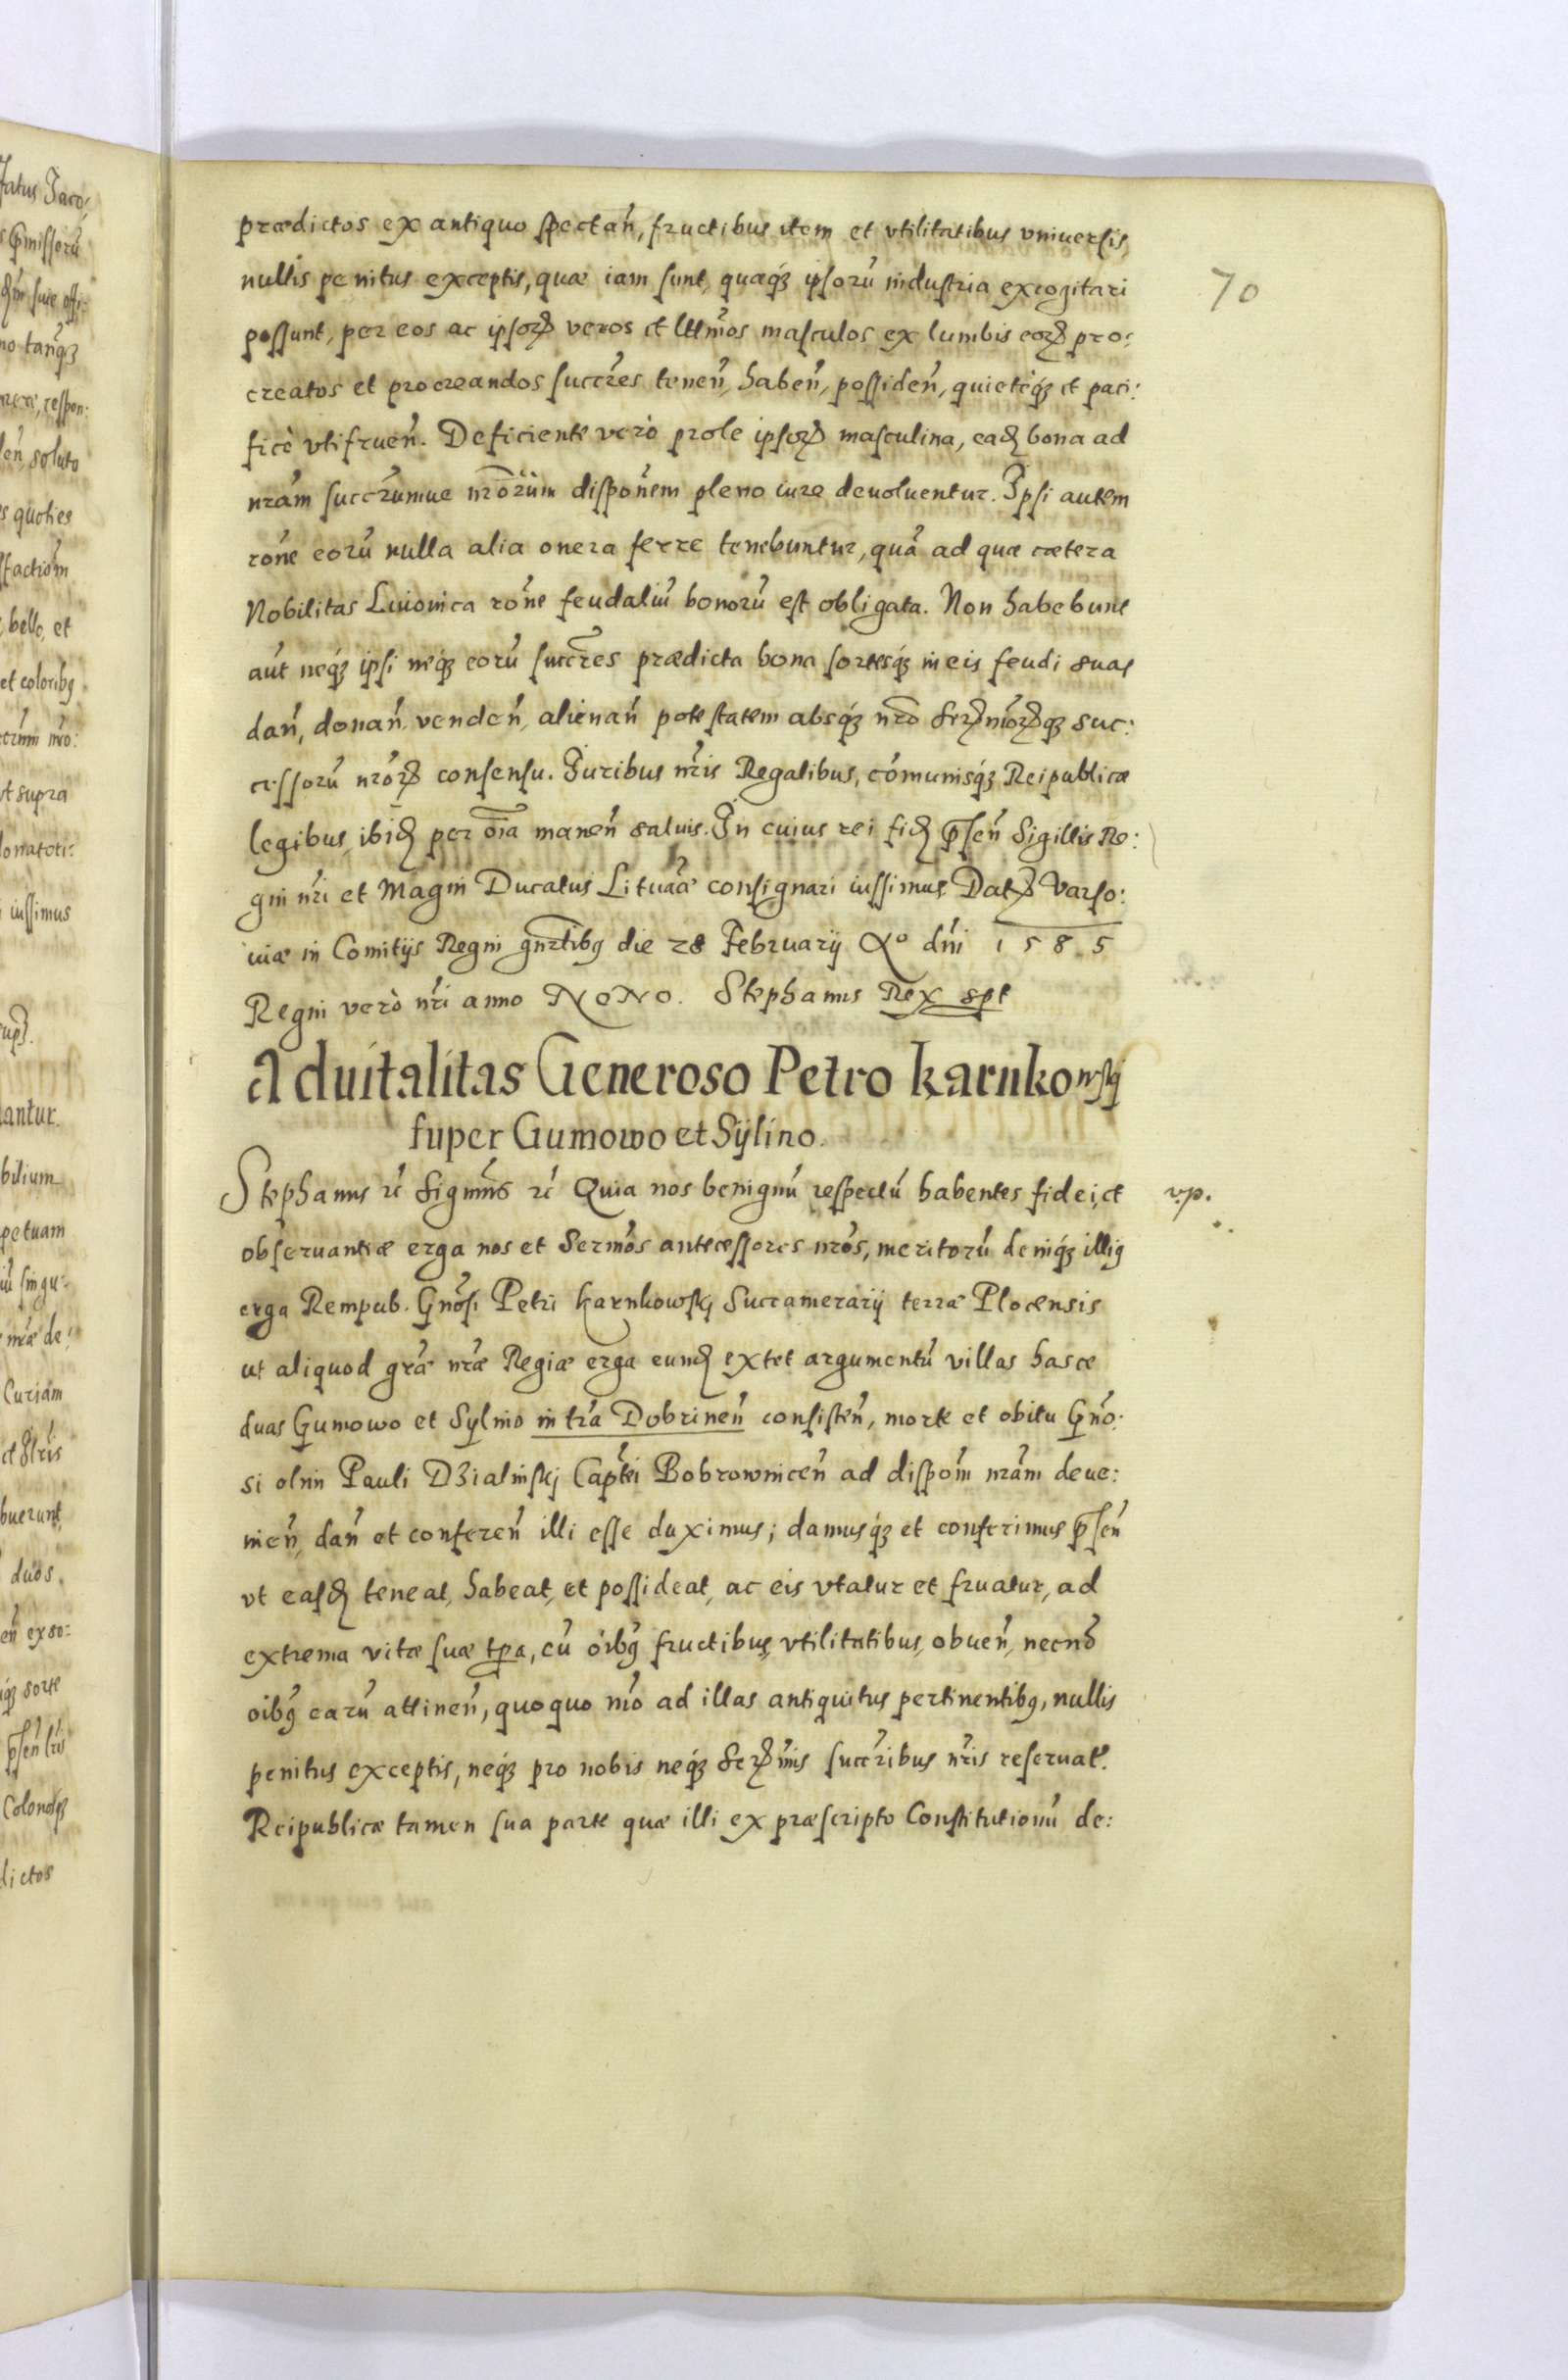 prædictos ex antiquo spectan̄, fructibus item et vtilitatibus vniuersis,
nullis penitus exceptis, quæ iam sunt, quæq́ꝫ ipsorū industria excogitari
possunt, per eos ac ipsorꝝ veros et lttīmos masculos ex lumbis eorꝝ pro:
creatos et procreandos succr̄es tenen̄, haben̄, possiden̄, quieteq́ꝫ et paci:
ficè vtifruen̄. Deficiente verò prole ipsorꝝ masculina, eaꝺ bona ad
nrām succr̄umue nr̄orum dispon̄em pleno iure deuoluentur. Ipsi autem
rōne eorū nulla alia onera ferre tenebuntur, quā ad quæ cætera
Nobilitas Liuonica rōne feudaliū bonorū est obligata. Non habebunt
aut̄ neq́ꝫ ipsi neq́ꝫ eorū succr̄es prædicta bona sortesq́ꝫ in eis feudi suas
dan̄, donan̄, venden̄, alienan̄ potestatem absq́ꝫ nr̄o Serꝝmorꝝqꝫ suc:
cessorū nrōrꝝ consensu. Iuribus nr̄is Regalibus, cōmunisq́ꝫ Reipublicæ
legibus, ibiꝺ per oīa manen̄ saluis. In cuius rei fiꝺ p̄sen̄ Sigillis Re:
gni nr̄i et Magni Ducatus Lituāæ consignari iussimus. Datꝝ Varso:
uiæ in Comitijs Regni gnrl̄ibꝫ die 28 Februarij Aº dn̄i 1585
Regni verò nr̄i anno NoNo. Stephanus Rex spt
Aduitalitas Generoso Petro Karnkowskj
super Gumowo et Sÿlino.
Stephanus rc̄ Signm̄s rc̄ Quia nos benignū respectū habentes fidei, et
v.p.
obseruantiæ erga nos et Sermōs antecessores nrōs, meritorū deniq́ꝫ illiꝰ
erga Rempub. Gnōsi Petri Karnkowskj Succamerarij terræ Plocensis
ut aliquod grāæ nr̄æ Regiæ erga eunꝺ extet argumentū villas hasce
duas Gumowo et Sylino in tr̄a Dobrinen̄ consisten̄, morte et obitu Gnō:
si olim Pauli Dzialinskj Cap̄tei Bobrownicen̄ ad dispōm nrām deue:
nien̄, dan̄ et conferen̄ illi esse duximus; damusq́ꝫ et conferimus p̄sen̄
vt easꝺ teneat, habeat, et possideat, ac eis vtatur et fruatur, ad
extrema vitæ suæ tp̄a, cū ōibꝰ fructibus, vtilitatibus, obuen̄, necnō
oībꝰ earū attinen̄, quoquo mō ad illas antiquitus pertinentibꝫ, nullis
penitus exceptis, neq́ꝫ pro nobis neq́ꝫ Serꝝmis succr̄ibus nr̄is reseruat̄.
Reipublicæ tamen sua parte quæ illi ex præscripto Constitutionū de:
70